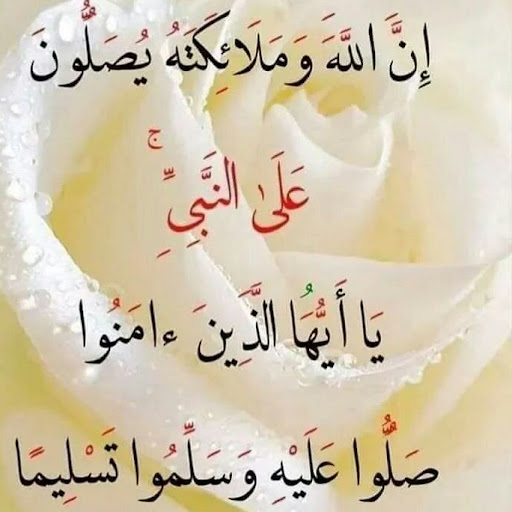 إِنَّ اللَّهَ وَمَلَائِكَتَهُ يُصَلُّونَ
عَلَىٰ النَّبِيِّ ۚ
يَا أَيُّهَا الَّذِينَ ءَامَنُوا
صَلُّوا عَلَيْهِ وَسَلِّمُوا تَسْلِيمًا